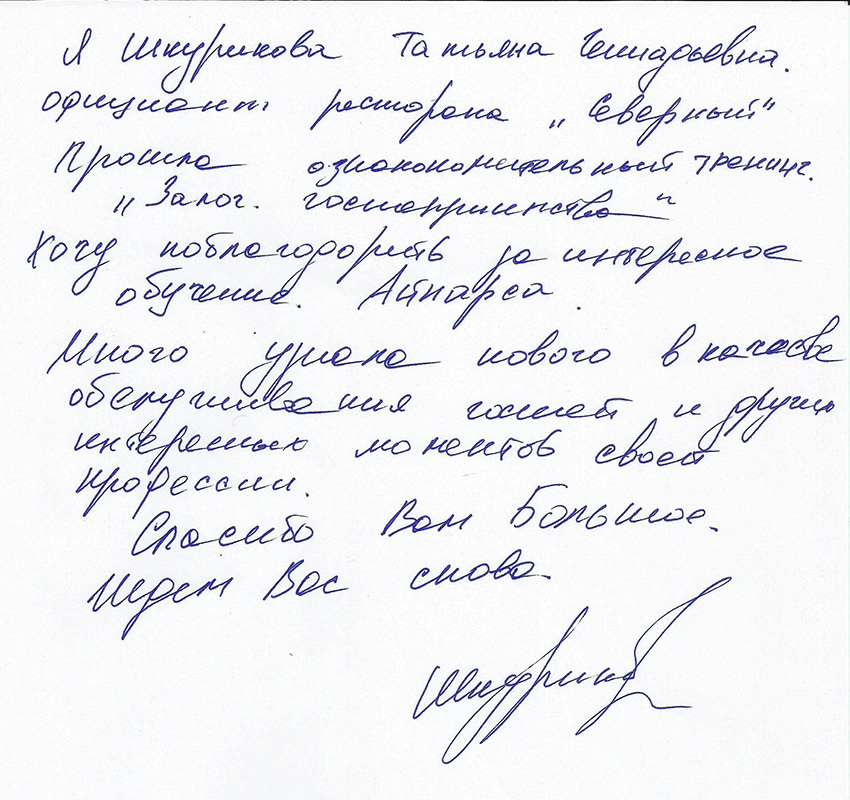 Я Шкурикова Татьяна Генадьевна.
официант ресторана „Северный"
Прошла ознокономительный тренинг.
„Залог. гостеприимства"
Хочу поблагодорить за интересное
обучение. Айнарса
Много узнала нового в качестве
обслуживания гостей и других
интересных моментов своей
профессии.
Спасибо Вам Большое.
Ждем Вас снова.